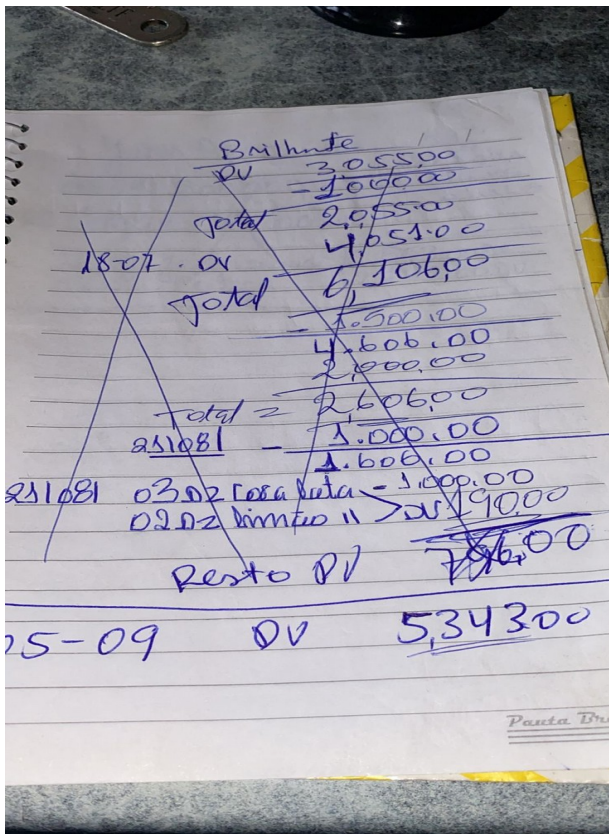 Brilhante / /
DV 3.055.00
- 1.000.00
Total 2.055.00
18-07. DV 4.051.00
Total 6,106,00
- 1.500.00
4.606.00
2.000.00
Total = 2,606,00
211081 - 1.000.00
1.606.00
211081 03 Dz Cosa - 1.000.00
02 Dz limão 11 > DV 190.00
Resto DV
05-09 DV 5,343.00
Pauta